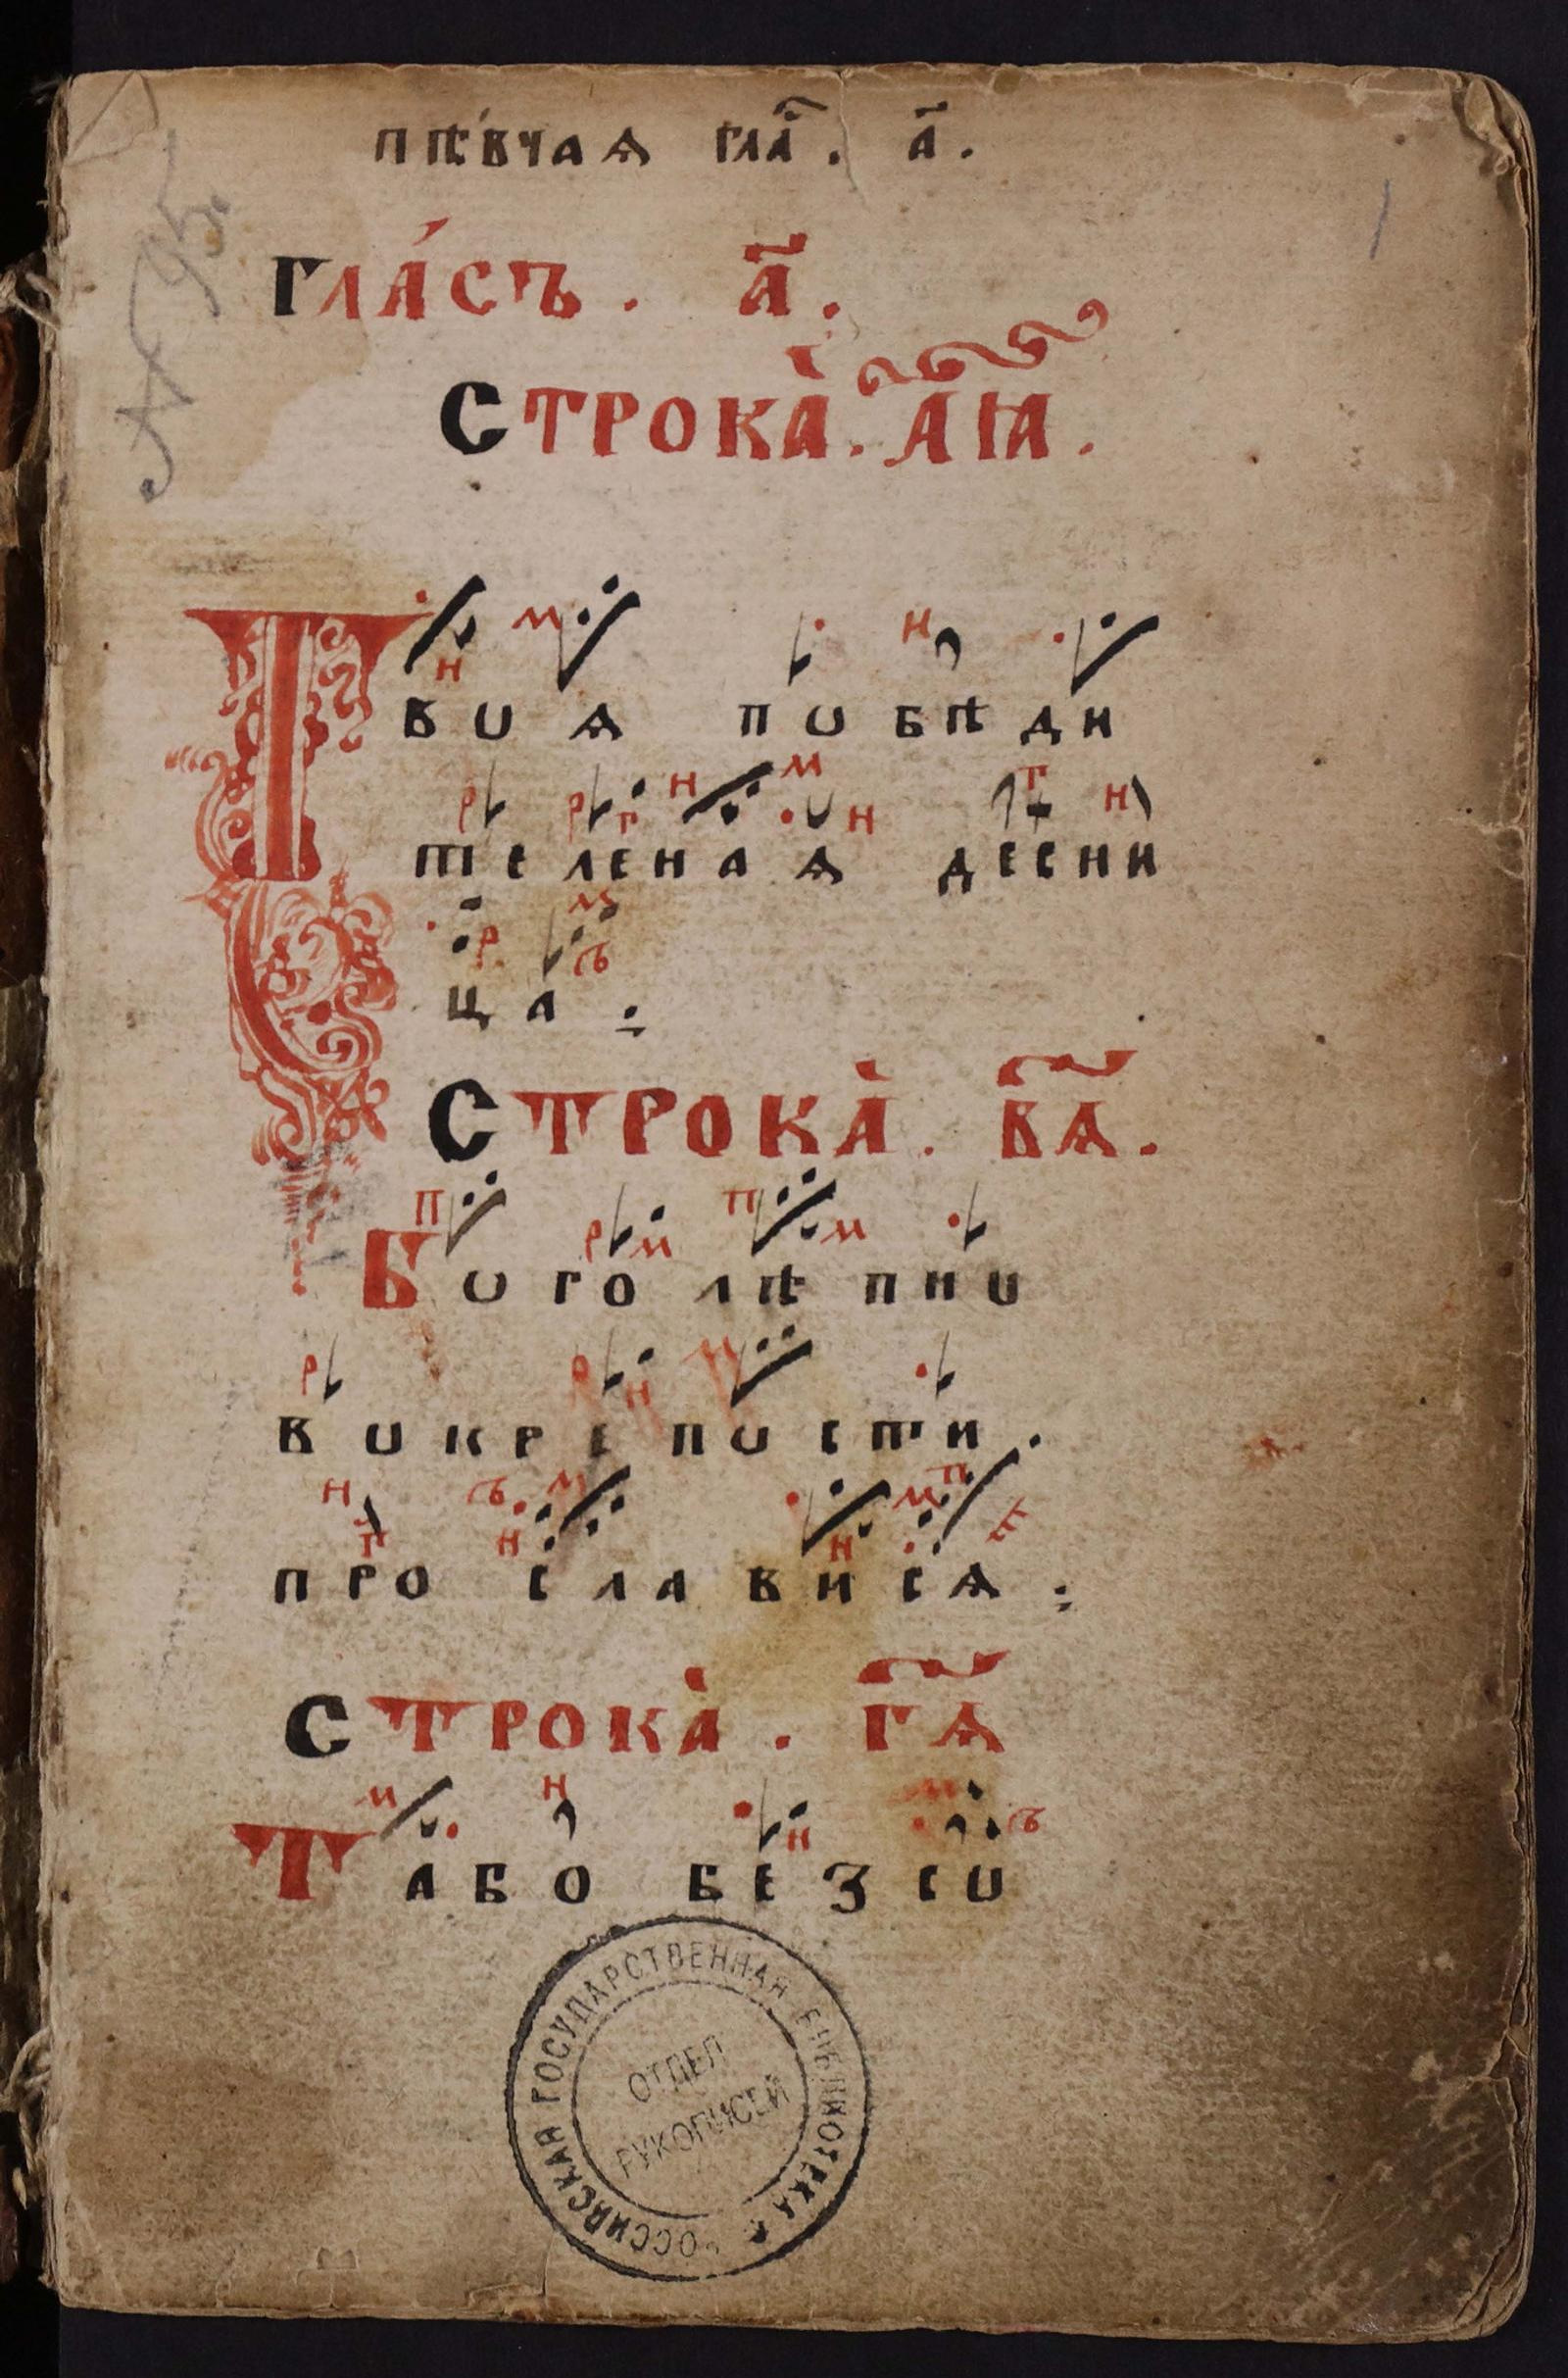 пѣ́вчаѧ гла҃. а҃.
№ 95.
1
Гла́съ. а҃.
Строка̀. а҃ꙗ.
Твоѧ побѣди
телеnаѧ десни
ца :
Строка̀. в҃ѧ.
Боголѣпно
вокрепости.
прослависѧ :
Строка̀. г҃ѧ
Табо безсо
РОССИЙСКАЯ ГОСУДАРСТВЕННАЯ БИБЛИОТЕКА
ОТДЕЛ
РУКОПИСЕЙ